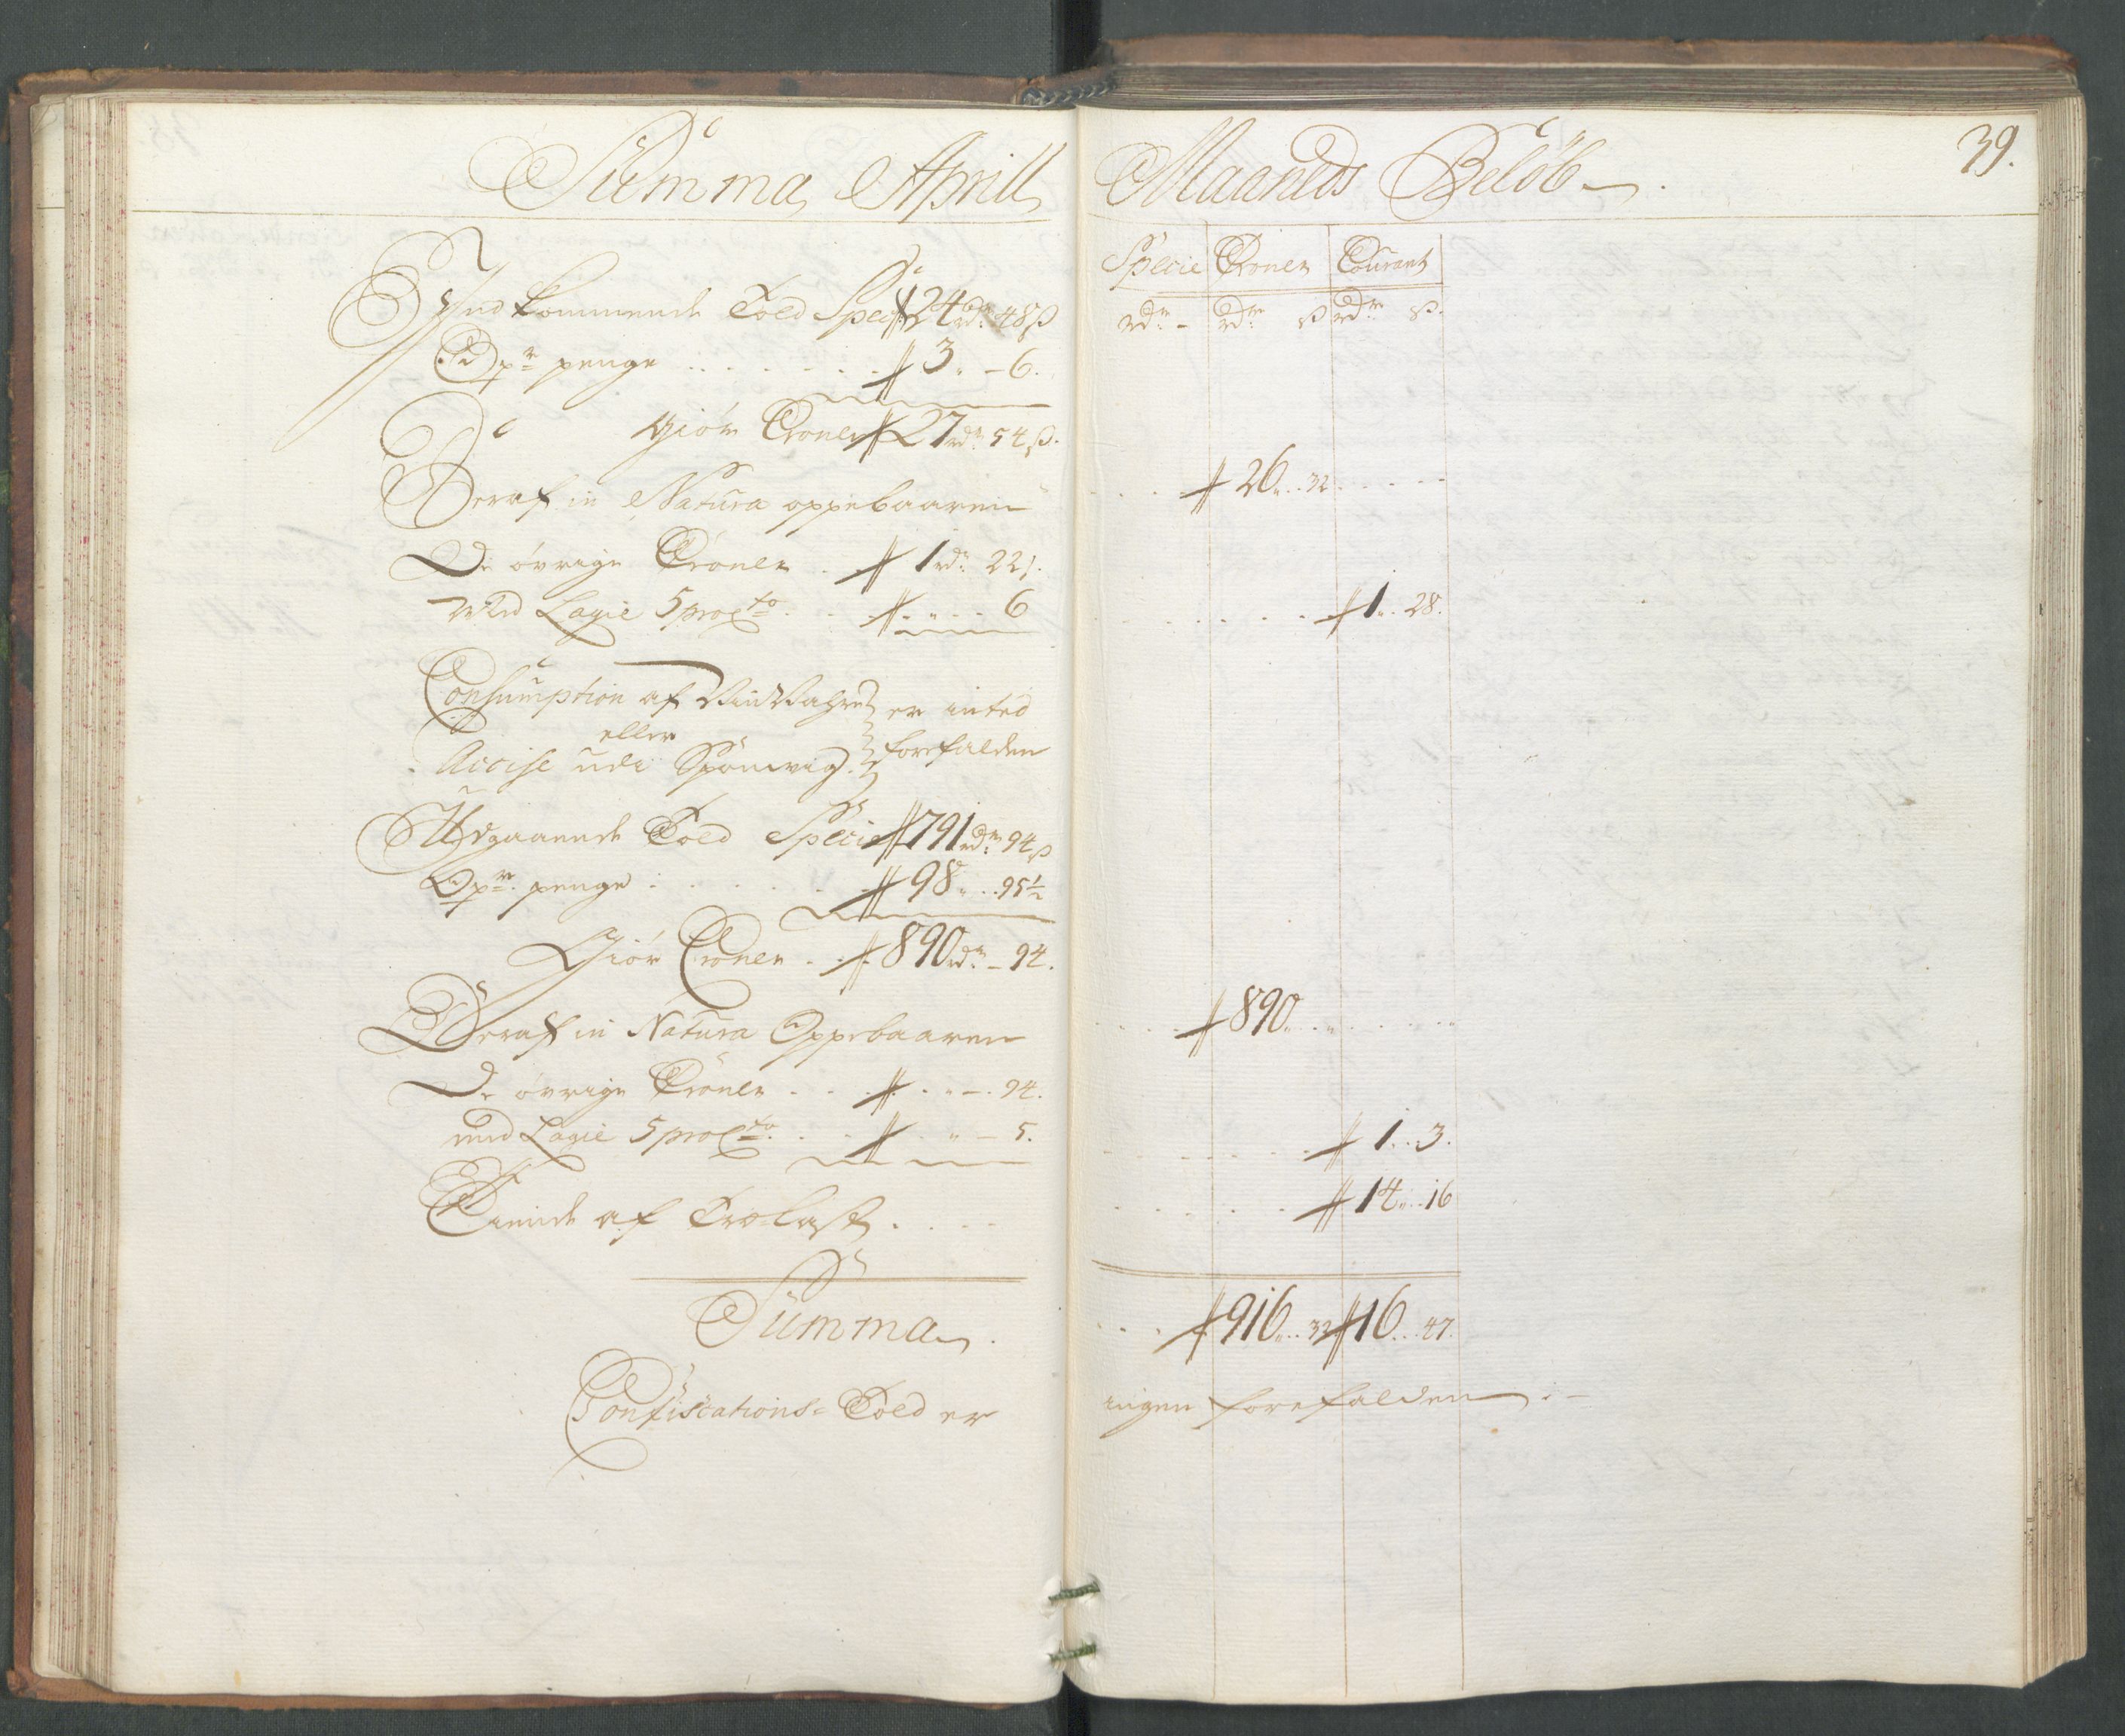 Summa Aprill Maaneds Beløb 39.
Specie Croner Courant
rdr rdr ß rdr ß
Indkommende Told Specie 24 rdr 48 ß
Opr penge 3 - 6.
Giør Croner 27 rdr 54 ß.
Deraf in Natura oppebaaren 26 .. 32
De øvrige Croner 1 rdr 22 ß.
med Lagie 5 proCto 6 1 .. 28.
Consumption af Vin Vahre er inted
eller forefalden
Accise udi
Udgaaende Told Specie 791 rdr 94 ß
Opr penge 98 .. 95½
Giør Croner 890 rdr - 94.
Deraf in Natura Oppebaaren 890
De øvrige Croner 94.
med Lagie 5 proCto 5. 1 .. 3.
Tiende af Trælast 14 .. 16
Summa 916 .. 32 16 .. 47.
Confiscations- Told er ingen forefalden